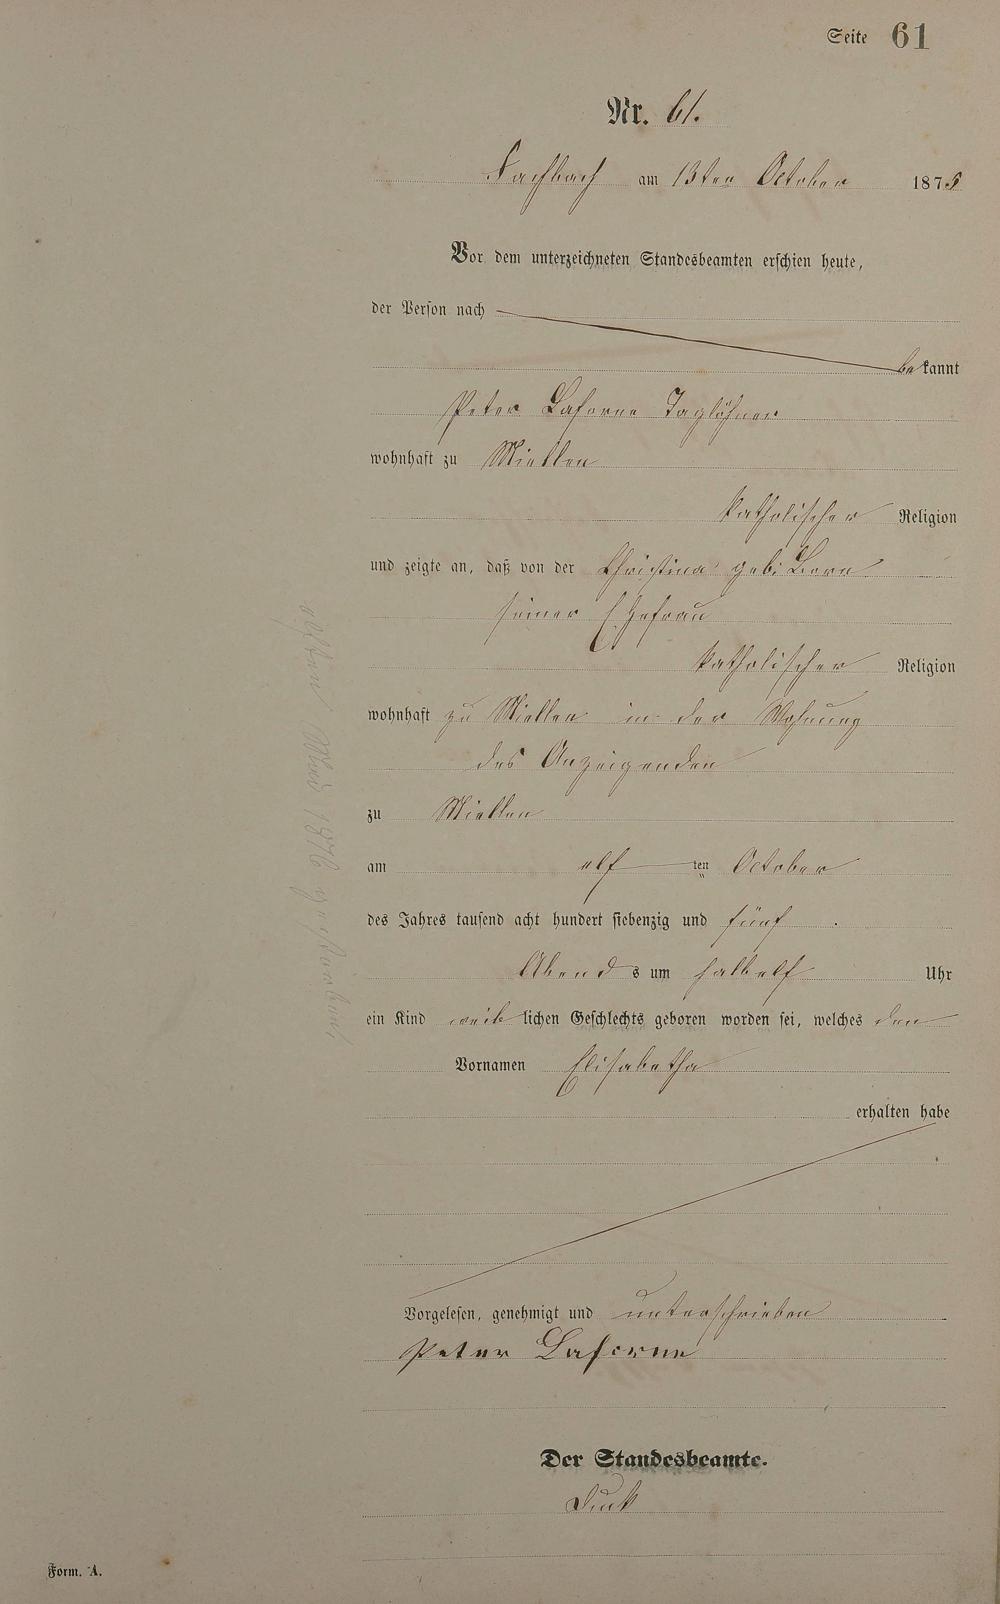 Seite 61
Nr. 61.
Fachbach am 13ten October 1875
Vor dem unterzeichneten Standesbeamten erschien heute,
der Person nach
bekannt
Peter Laforne Taglöhner
wohnhaft zu Miellen
katholischer Religion
und zeigte an, daß von der Christina geb. Born
seiner Ehefrau
katholischer Religion
wohnhaft zu Miellen in der Wohnung
des Anzeigenden
zu Miellen
am elf ten October
des Jahres tausend acht hundert siebenzig und fünf
Abends um halbelf Uhr
ein Kind weiblichen Geschlechts geboren worden sei, welches den
Vornamen Elisabetha
erhalten habe
Vorgelesen, genehmigt und unterschrieben
Peter Laforne
Der Standesbeamte.
Form. A.
1876 gestorben